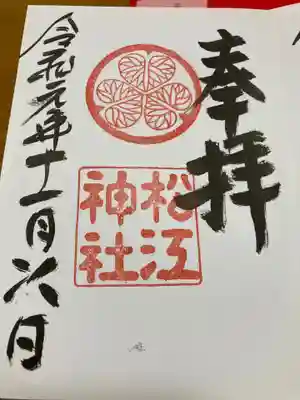 奉拝
松江
神社
令和元年十一月六日